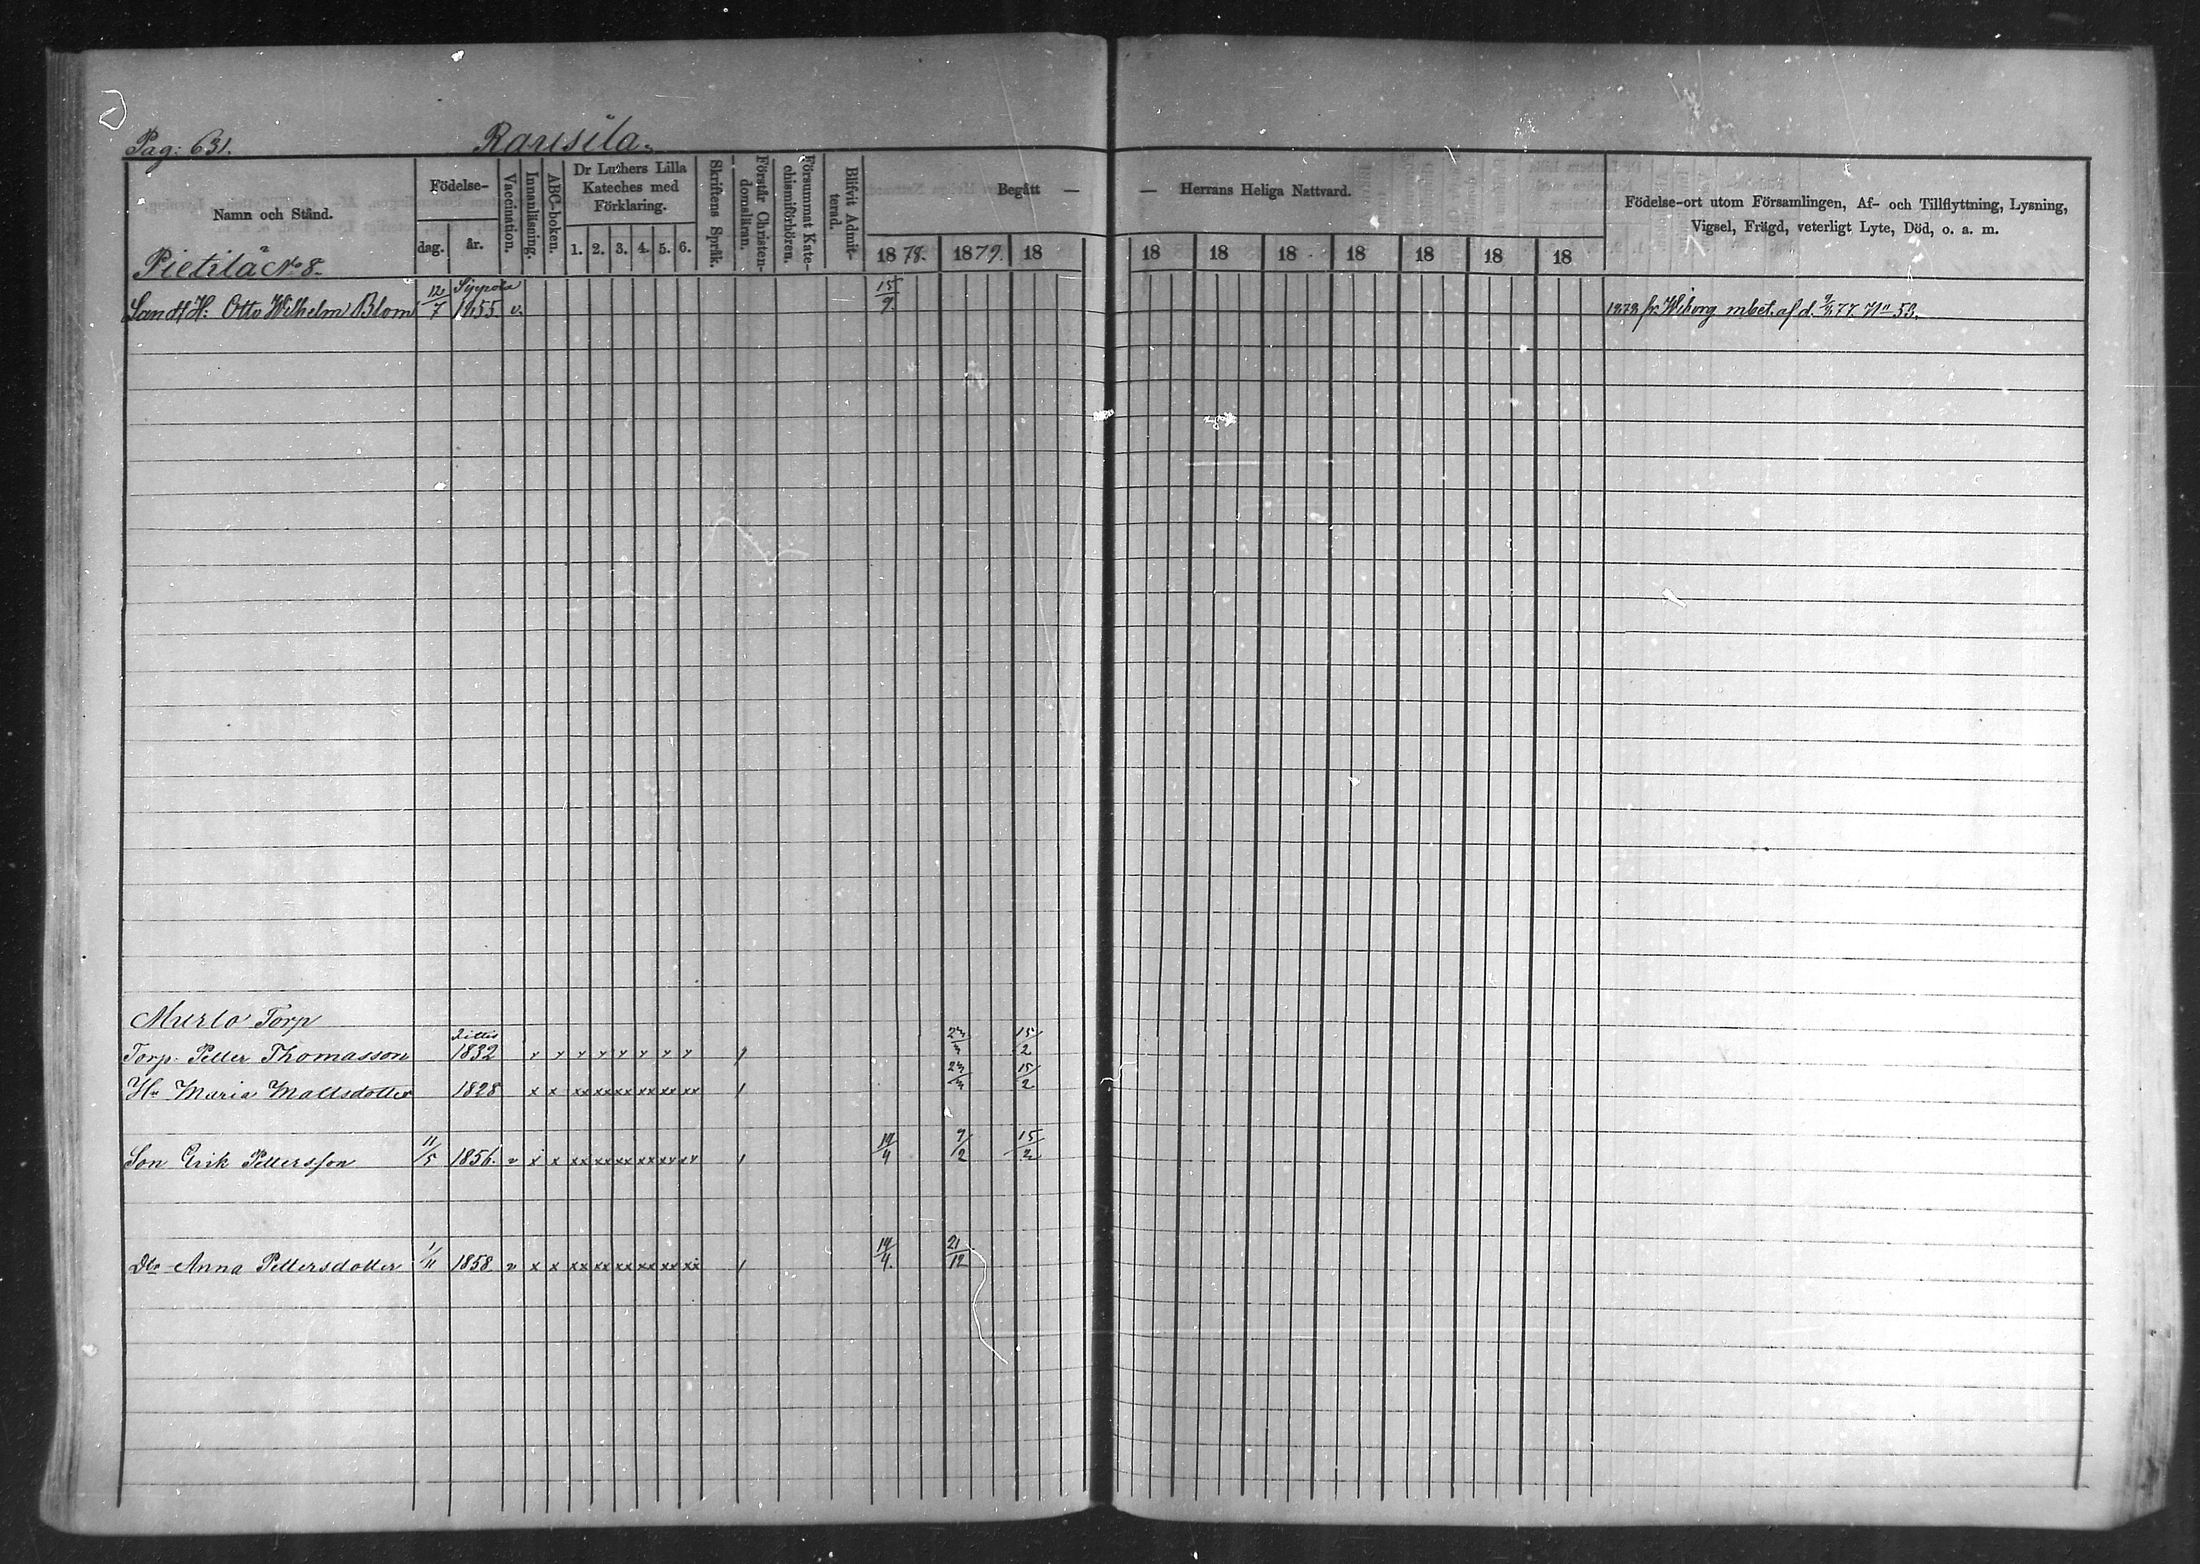 Pag: 631. Rausila.
Namn och Stånd. Födelse- dag. år. Vaccination. Innanläsning. ABC-boken. Dr Luthers Lilla Kateches med Förklaring. 1. 2. 3. 4. 5. 6. Skriftens Språk. Förstår Christendomsläran. Försummat Katechismiförhören. Blifvit Admitterad. Begått — — Herrans Heliga Nattvard. Födelse-ort utom Församlingen, Af- och Tillflyttning, Lysning, Vigsel, Frägd, veterligt Lyte, Död, o. a. m.
1878. 1879. 18 18 18 18 18 18 18 18
Pietilä No 8.
Otto Wilhelm Blom 12/7 Sippola 1855 v. 15/9. 1878 fr. Wiborg mbet. af d. 9/1 77. No 53.
Torp
Torp. Petter Thomasson 1832 x x x x x x x x 23/3 15/2
H:u Maria Mattsdotter 1828 x x xx xx xx xx xx xx 23/3 15/2
Son Erik Pettersson 11/5 1856. v x x xx xx xx xx xx xx 19/4 9/2 15/2
Dtr Anna Pettersdotter 1/11 1858 v x x xx xx xx xx xx xx 19/4. 21/12